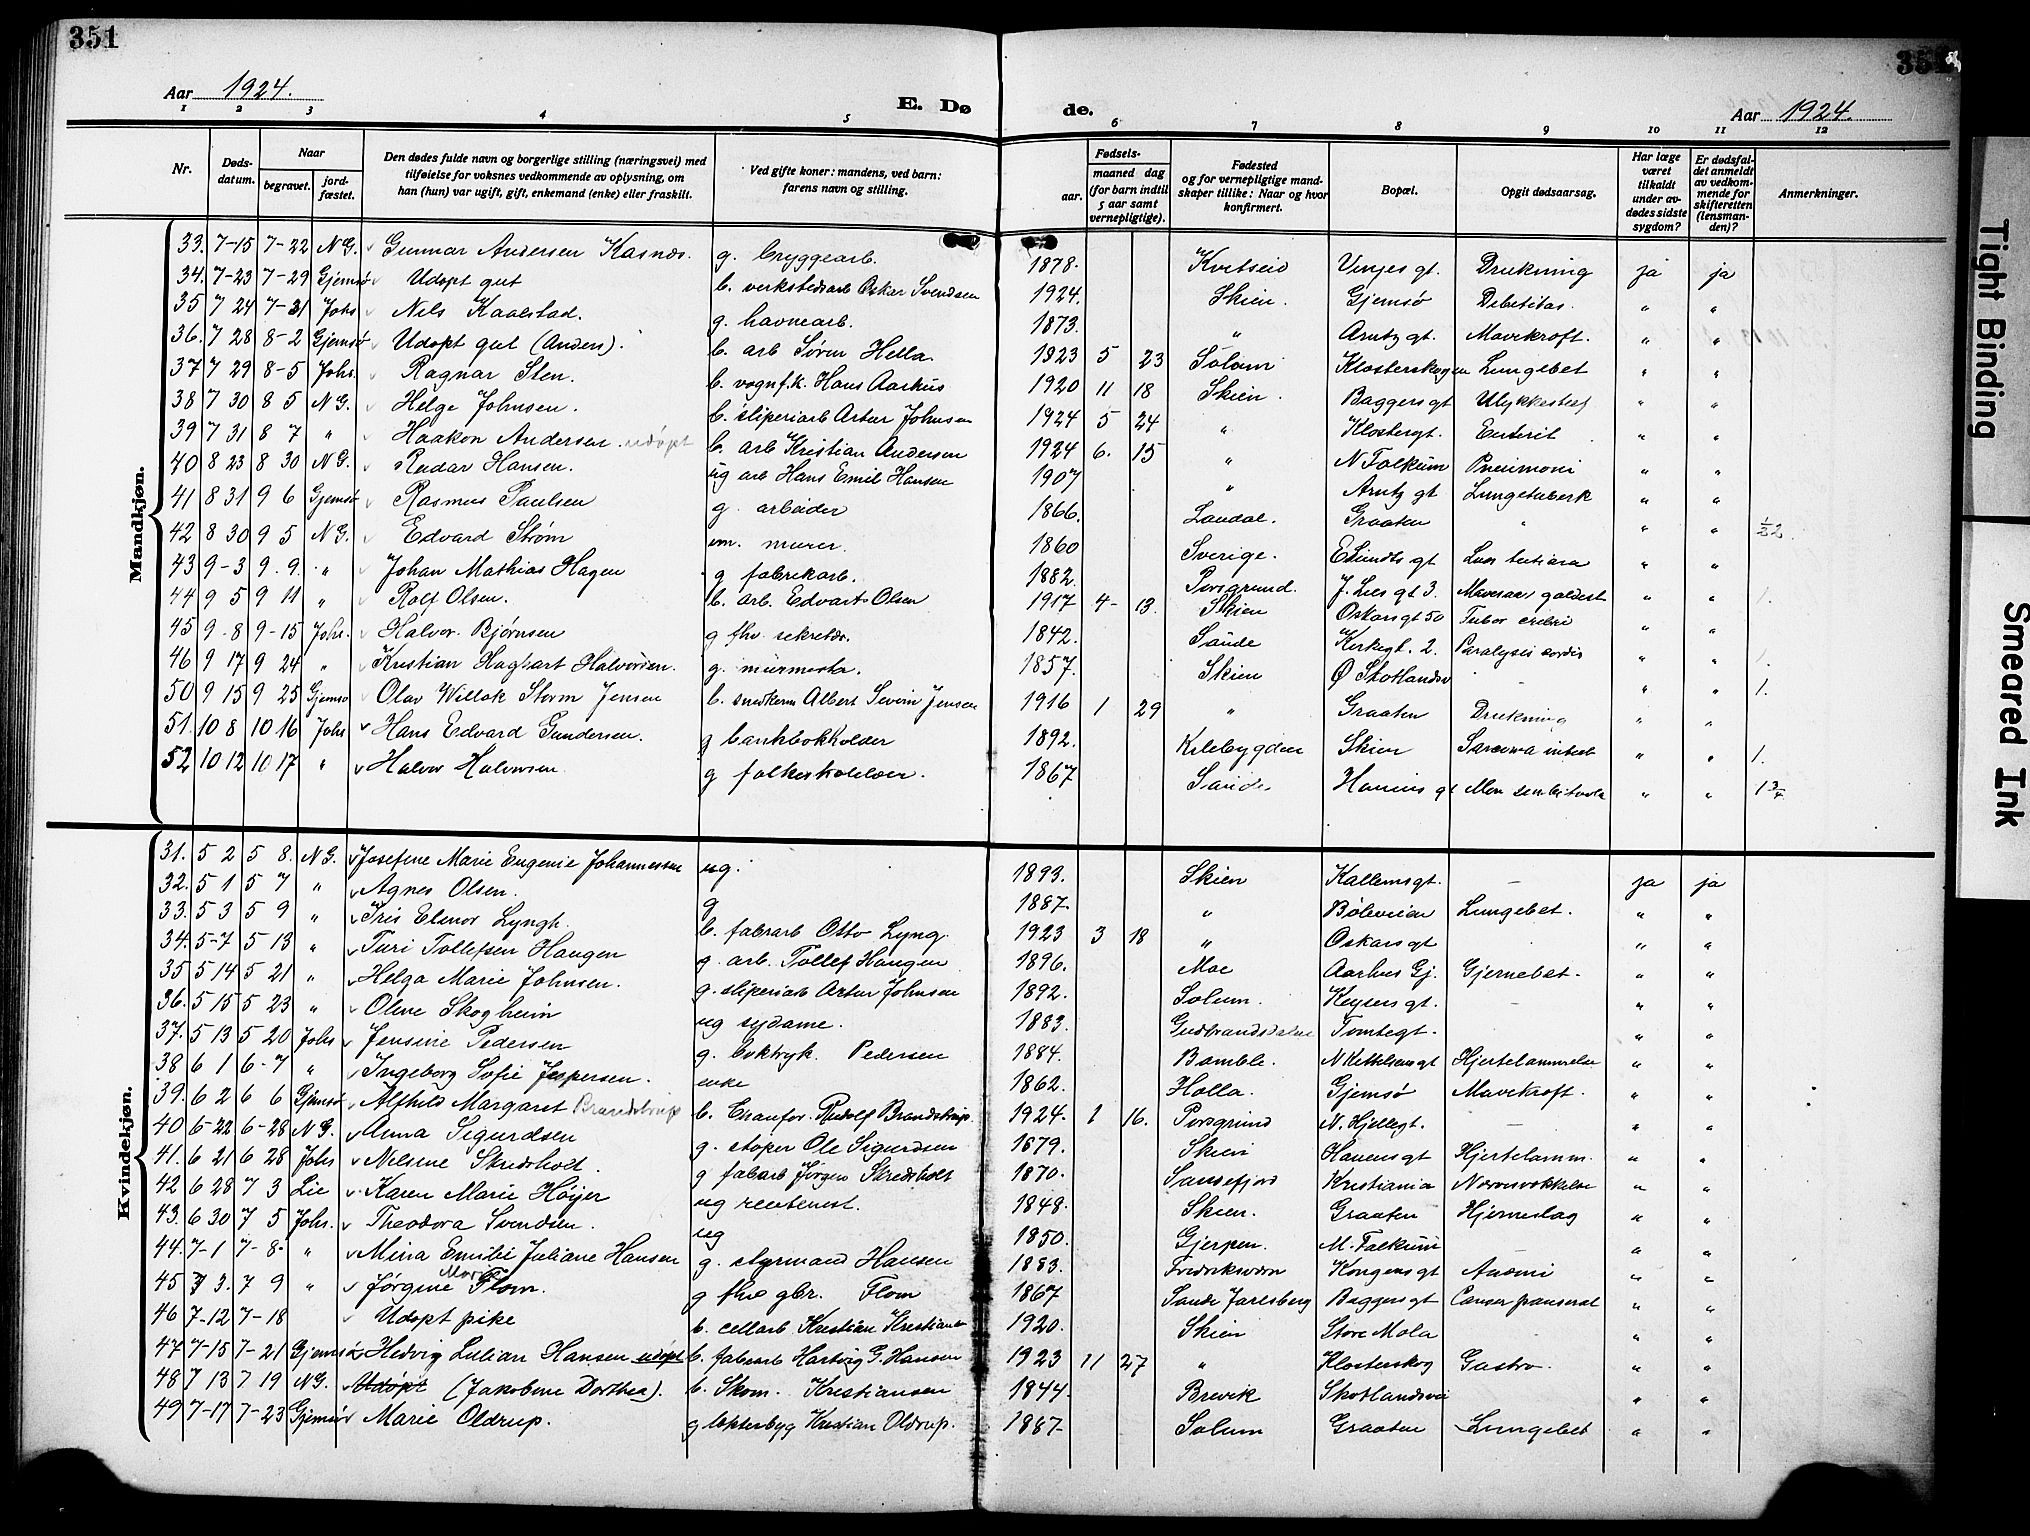 351
351
Aar 1924.
E. Dø de.
Aar 1924.
1 2 3 4 5 6 7 8 9 10 11 12
Nr.
Døds-datum.
Naar
begravet.
jord-fæstet.
Den dødes fulde navn og borgerlige stilling (næringsvei) med
tilføielse for voksnes vedkommende av oplysning, om
han (hun) var ugift, gift, enkemand (enke) eller fraskilt.
Ved gifte koner: mandens, ved barn:
farens navn og stilling.
Fødsels-
aar.
maaned dag
(for barn indtil
5 aar samt
vernepligtige).
Fødested
og for vernepligtige mand-
skaper tillike: Naar og hvor
konfirmert.
Bopæl.
Opgit dødsaarsag.
Har læge
været
tilkaldt
under av-
dødes sidste
sygdom?
Er dødsfal-
det anmeldt
av vedkom-
mende for
skifteretten
(lensman-
den)?
Anmerkninger.
Mandkjøn.
33. 7-15 7-22 N G. Gunnar Andersen Kasnæs. g. bryggearb. 1878. Kvitseid Vinjes gt. Drukning ja ja
34. 7-23 7-29 Gjemsø Udøpt gut b. verkstedsarb Oskar Svendsen 1924. Skien. Gjemsø Debilitas. " "
35 7 24 7-31 Johs Nils Kaalstad. g. havnearb. 1873. " Arntz gt. Mavekræft. " "
36. 7 28 8-2 Gjemsø Udøpt gut (Anders). b. arb Søren Hella. 1923 5 23 Solum Klosterskogen Lungebet " "
37 7 29 8-5 Johs. Ragnar Sten. b. vognf.k. Hans Aarhus 1920 11 18 Skien. Baggers gt Ulykkestilf " "
38 7 30 8 5 N G. Helge Johnsen. b. sliperiarb Artur Johnsen 1924 5 24 " Klostergt. Enterit " "
39 7 31 8 7 " Haakon Andersen. udøpt b. arb Kristian Andersen 1924 6. 15 " N Falkum Pneumoni " "
40 8 23 8 30 N G. Reidar Hansen. ug arb Hans Emil Hansen 1907 " Arntz gt Lungetuberk " "
41 8 31 9 6 Gjemsø Rasmus Paulsen g. arbeider 1866. Laudal. Graaten " " "
42 8 30 9 5 N G. Edvard Strøm em. murer. 1860 Sverige. E Sundts gt " "
43 9-3 9. 9. " Johan Mathias Hagen g fabrikarb. 1882. Porsgrund. J. Lies gt 3. " "
44 9 5 9 11 " Rolf Olsen. b. arb. Edvart Olsen 1917 4- 13. Skien Oskars gt 50 " "
45 9-8 9-15 Johs. Halvor Bjørnsen g fhv. sekretær. 1842. Saude Kirkegt. 2. Paralysis cordis " "
46 9 17 9 24 " Kristian Hagbart Halvorsen. g. murmester. 1857. Skien Ø Skotlandsv " "
50 9 15 9 25 Gjemsø Olav Willok Storm Jensen b. snekkerm Albert Severin Jensen 1916 1 29 " Graaten Drukning " "
51. 10 8 10 16 Johs Hans Edvard Gundersen. g bankbokholder 1892. Kilebygden Skien " " 1.
52 10 12 10 17 " Halvor Halvorsen. g folkeskolelærer. 1867 Saude " " 1 3/4
Kvindekjøn.
31. 5 2 5 8. N G. Josefine Marie Eugenie Johannessen ug. 1893. Skien Kallemsgt. - ja ja
32. 5 1 5 7 " Agnes Olsen. g 1887. " Bøleveien Lungebet. " "
33. 5 3 5 9 " Iris Elenor Lyngh. b. fabrarb Otto Lyng. 1923 3 18 " Oskars gt " "
34. 5-7 5 13 " Turi Tollefsen Haugen g. arb. Tollef Haugen 1896. Moe Aarhus Gj. Gjernebet. " "
35 5 14 5 21 " Helga Marie Johnsen. g. sliperiarb Artur Johnsen 1892. Solum. Keysers gt. - " "
36. 5 15 5 23 " Oline Skogheim ug sydame. 1883. Gudbrandsdalen Tomtegt. " "
37. 5 13 5 20 Johs Jensine Pedersen g. boktryk. Pedersen 1884. Bamble. N Kettelsens gt Hjertelammelse " "
38 6 1 6-7 " Ingeborg Sofie Jespersen. enke 1862. Holla. Gjemsø Mavekræft. " "
39. 6 2 6 6 Gjemsø Alfhild Margaret Brandstrup b. Chaufør. Rudolf Brandstrup. 1924. 1 16. Porsgrund N. Hjellegt. - " "
40 6-22 6-28 N G. Anna Sigurdsen g. støper Ole Sigurdsen 1879. Skien Havens gt Hjertelamm. " "
41. 6 21 6 28 Johs Nelsine Skredsholt. g fabarb Jørgen Skredsholt 1870. Sandefjord Kristiania " "
42 6 28 7 3 Lie Karen Marie Høyer ug rentenist. 1848. Skien. Graaten Hjerneslag " "
43. 6 30 7 5 Johs. Theodora Svendsen. ug 1850. Gjerpen. M. Falkum " "
44. 7-1 7-8- " Mina Emilie Juliane Hansen g. styrmand Hansen 1883. Fredriksværn Kongens gt Anæmi " "
45 7 3. 7 9 " Jørgine Marie Flom. g fhv gbr. Flom 1867 Sande Jarlsberg Baggers gt " "
46 7-12 7-18 Udøpt pike b. cellarb Kristian Kristiansen 1920. Skien Store Mola " "
47 7-15 7-21 Gjemsø Hedvig Lilian Hansen udøpt b. fabearb Hartvig G. Hansen 1923 11 27 " Klosterskog Gastro. " "
48 7 13 7 19 N G. Udøpt (Jakobine Dorthea). b. Skom. Kristiansen 1844. Brevik Skotlandsvei " "
49 7-17 7-23 Gjemsø Marie Oldrup. g Kristian Oldrup. 1887- Solum Graaten Lungebet " "
Tight Binding
Smeared Ink